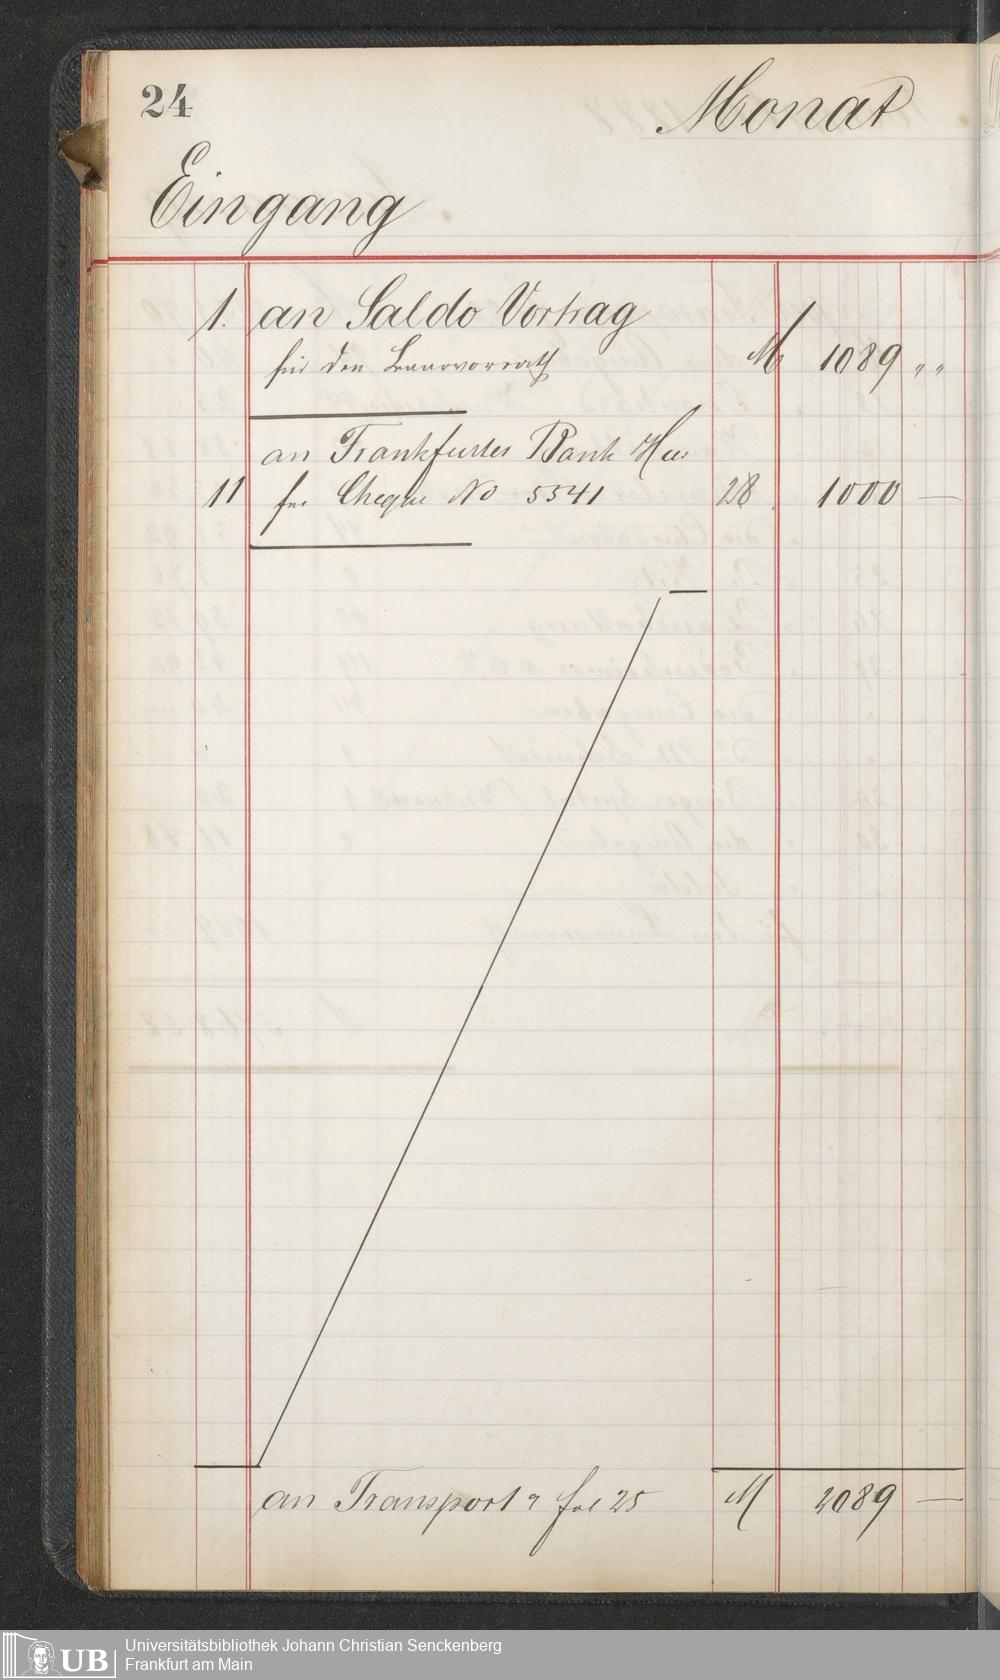 24
Monat
Eingang
1. an Saldo Vortrag
für den Baarvorrath M 1089 " "
an Frankfurter Bank
11 für Cheque No 5541 28 1000 —
an Transport a fol 25 M 2089 —
Universitätsbibliothek Johann Christian Senckenberg
Frankfurt am Main
UB